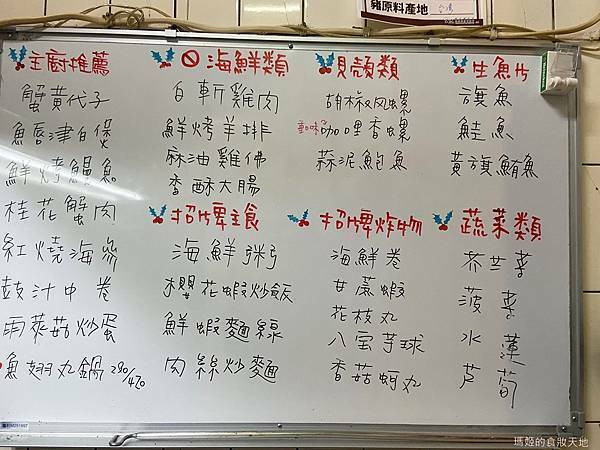 豬原料產地 台灣
主廚推薦
蟹黃代子
魚唇津白煲
鮮烤鰻魚
桂花蟹肉
紅燒海參
豉汁中卷
雨來菇炒蛋
魚翅丸鍋 290/470
海鮮類
白斬雞肉
鮮烤羊排
麻油雞佛
香酥大腸
招牌主食
海鮮粥
櫻花蝦炒飯
鮮蝦麵線
肉絲炒麵
貝殼類
胡椒风螺
咖哩香螺
蒜泥鮑魚
招牌炸物
海鮮卷
甘蔗蝦
花枝丸
八宝芋球
香菇蚵丸
生魚片
旗魚
鮭魚
黃旗鮪魚
蔬菜類
芥兰菜
菠菜
水蓮
芦筍
瑪姬的食妝天地